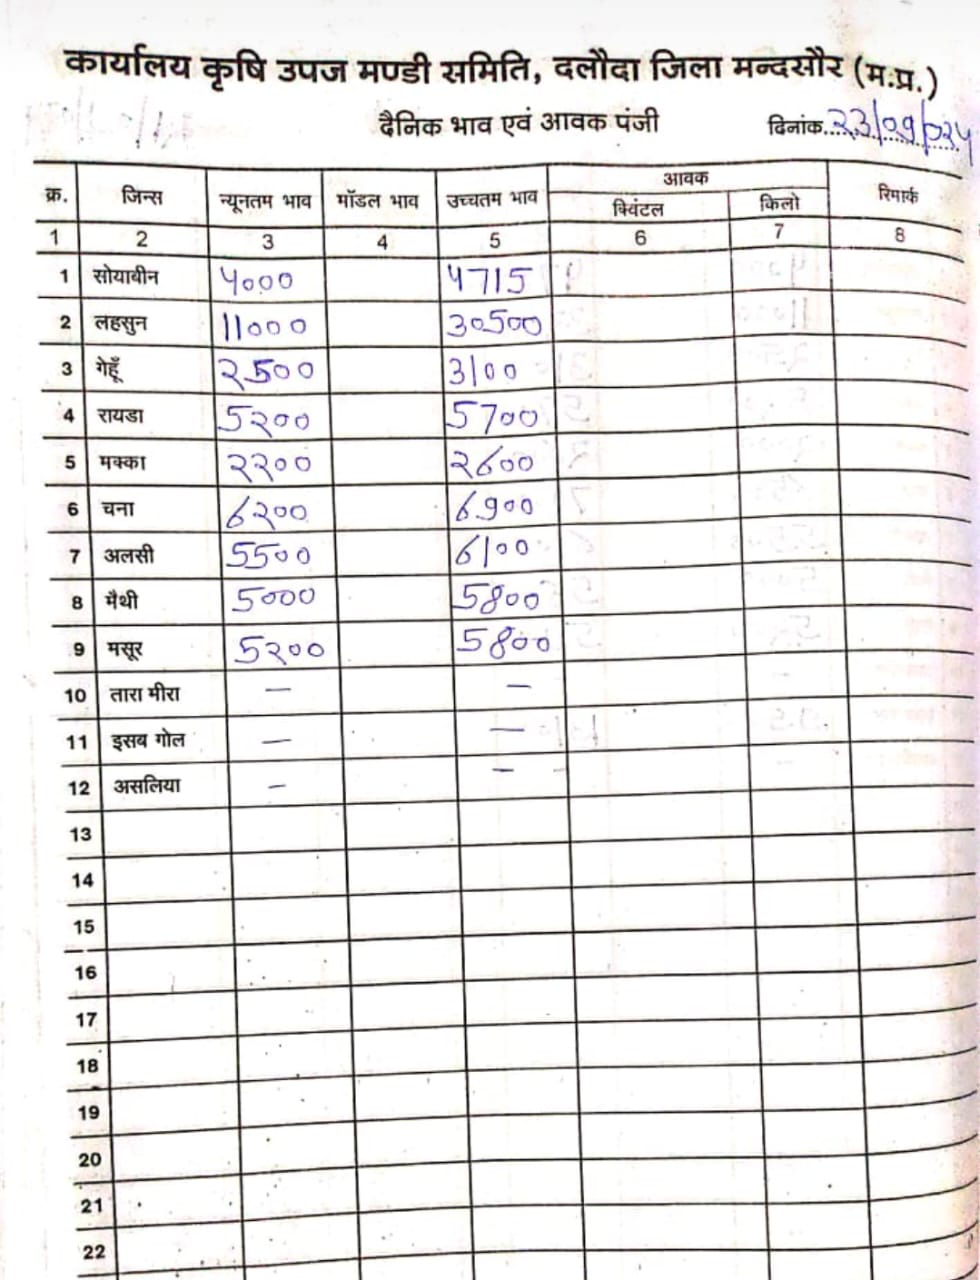 कार्यालय कृषि उपज मण्डी समिति, दलौदा जिला मन्दसौर (म.प्र.)
दैनिक भाव एवं आवक पंजी दिनांक 23/09/024
क्र. जिन्स न्यूनतम भाव मॉडल भाव उच्चतम भाव आवक रिमार्क
क्विंटल किलो
1 2 3 4 5 6 7 8
1 सोयाबीन 4000 4715
2 लहसुन 11000 30500
3 गेहूँ 2500 3100
4 रायडा 5200 5700
5 मक्का 2200 2600
6 चना 6200 6900
7 अलसी 5500 6100
8 मैथी 5000 5800
9 मसूर 5200 5800
10 तारा मीरा — —
11 इसब गोल — —
12 असलिया — —
13
14
15
16
17
18
19
20
21
22